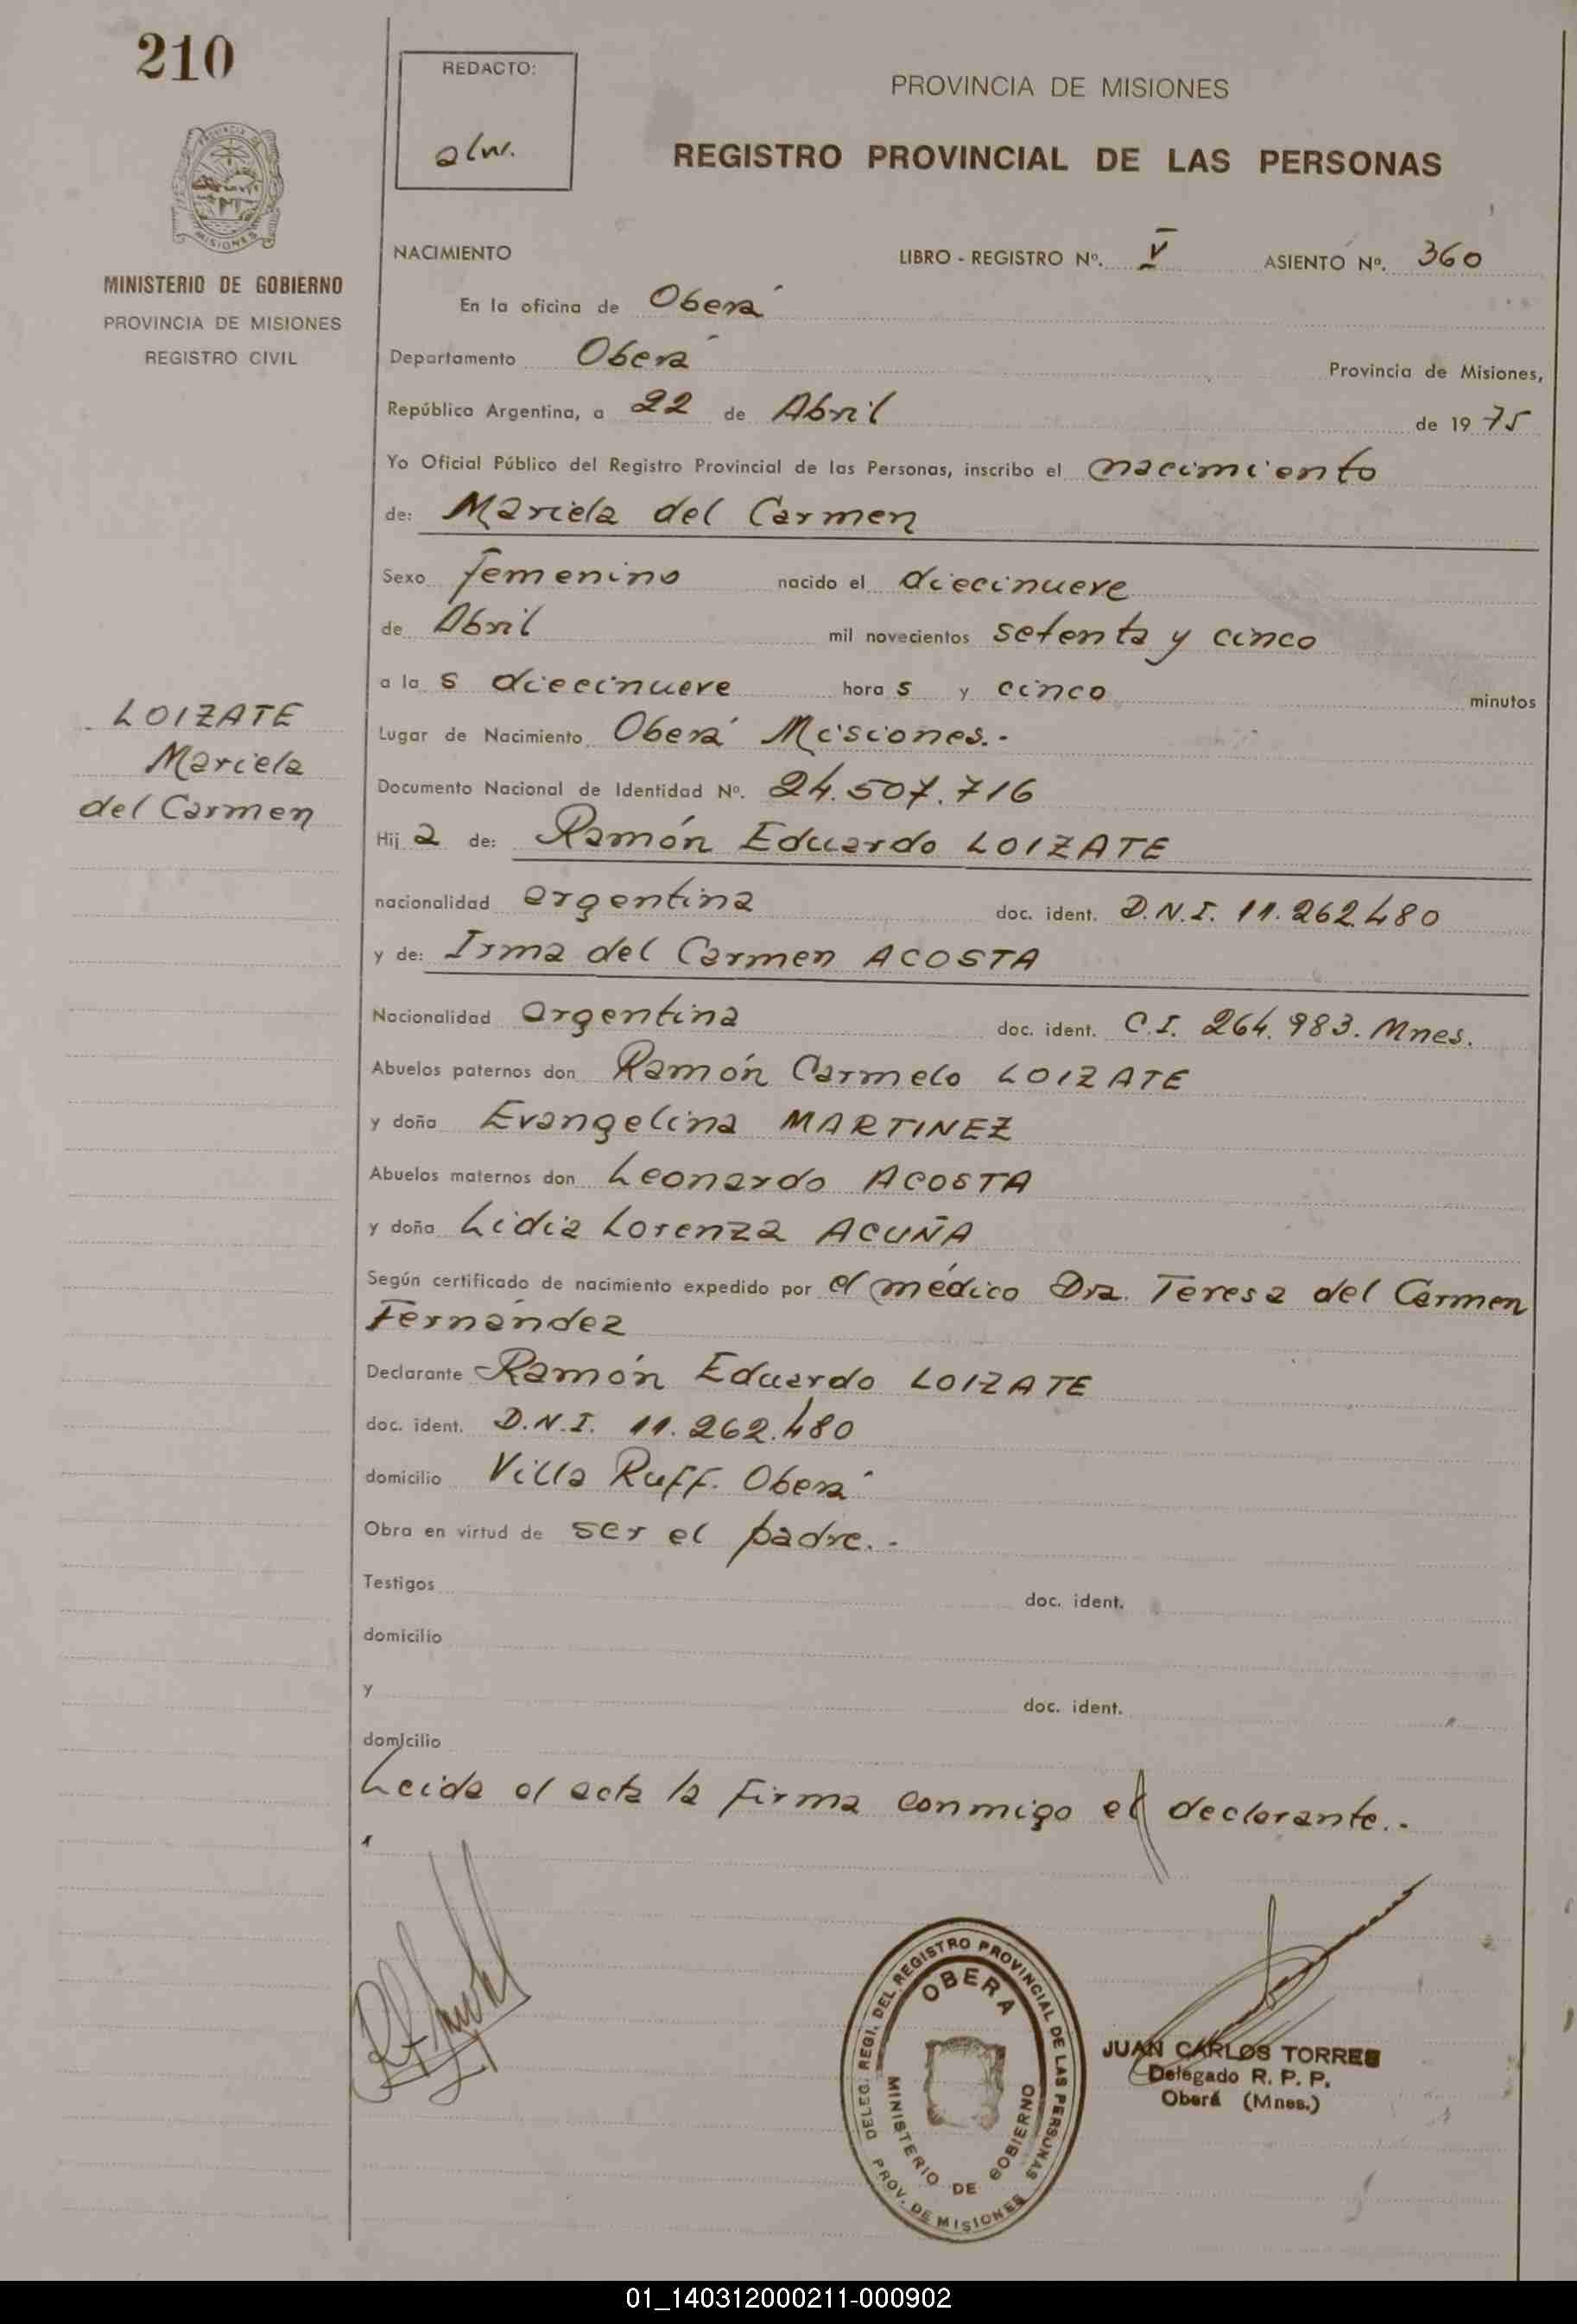 210
REDACTO:
alw.
PROVINCIA DE MISIONES
REGISTRO PROVINCIAL DE LAS PERSONAS
PROVINCIA DE MISIONES
MINISTERIO DE GOBIERNO
PROVINCIA DE MISIONES
REGISTRO CIVIL
NACIMIENTO LIBRO - REGISTRO Nº. V ASIENTO Nº. 360
En la oficina de Oberá
Departamento Oberá Provincia de Misiones,
República Argentina, a 22 de Abril de 1975
Yo Oficial Público del Registro Provincial de las Personas, inscribo el nacimiento
de: Mariela del Carmen
Sexo femenino nacido el diecinueve
de Abril mil novecientos setenta y cinco
a la s diecinueve hora s y cinco minutos
LOIZATE
Mariela
del Carmen
Lugar de Nacimiento Oberá Misiones.-
Documento Nacional de Identidad Nº. 24.507.716
Hij a de: Ramón Eduardo LOIZATE
nacionalidad argentina doc. ident. D.N.I. 11.262.480
y de: Irma del Carmen ACOSTA
Nacionalidad argentina doc. ident. C.I. 264.983. Mnes.
Abuelos paternos don Ramón Carmelo LOIZATE
y doña Evangelina MARTINEZ
Abuelos maternos don Leonardo ACOSTA
y doña Lidia Lorenza ACUÑA
Según certificado de nacimiento expedido por el médico Dra. Teresa del Carmen
Fernández
Declarante Ramón Eduardo LOIZATE
doc. ident. D.N.I. 11.262.480
domicilio Villa Ruff. Oberá
Obra en virtud de ser el padre.-
Testigos doc. ident.
domicilio
y doc. ident.
domicilio
Leida el acta la firma conmigo el declarante.-
DELEG. REGI. DEL REGISTRO PROVINCIAL DE LAS PERSONAS
OBERA
MINISTERIO DE GOBIERNO
PROV. DE MISIONES
JUAN CARLOS TORRES
Delegado R. P. P.
Oberá (Mnes.)
01_140312000211-000902